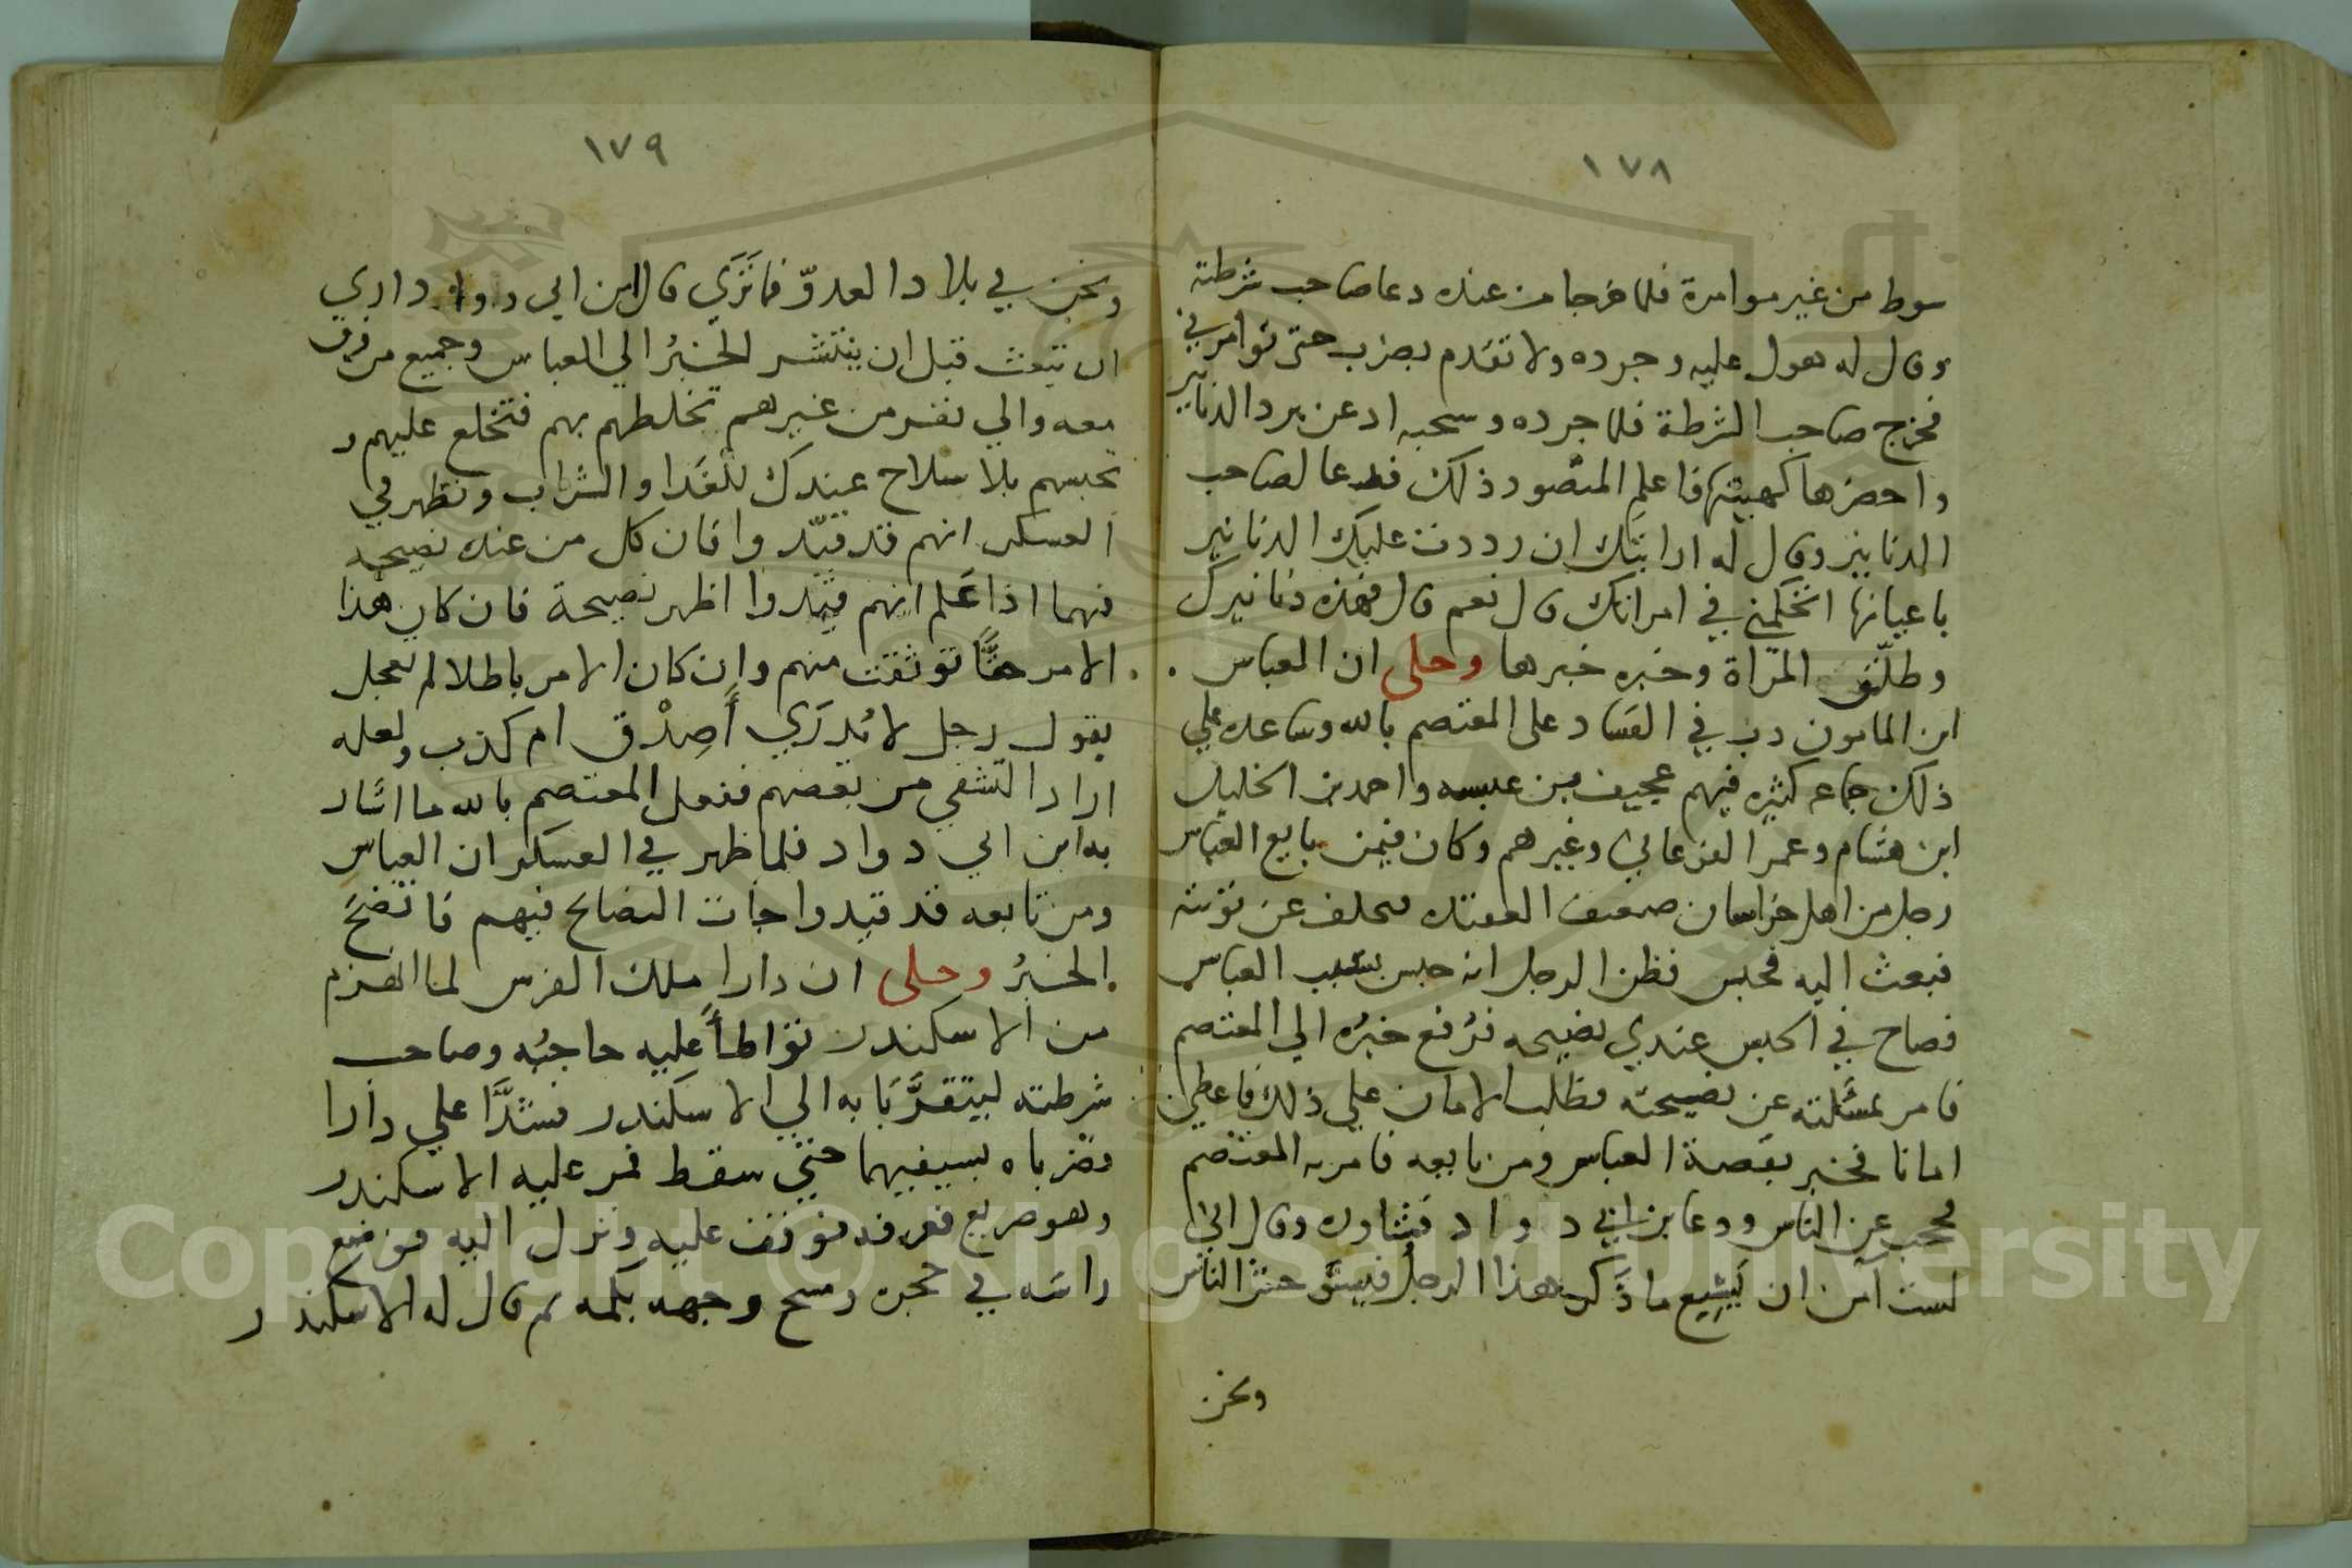 ١٧٨
سوط من غير موامرة فلما خرجا من عنده دعا صاحب شرطته
وقال له هول عليه وجرده ولا تقدم بضرب حتى توامرني
فخرج صاحب الشرطة فلما جرده وسحبه اذعن برد الدنانير
واحضرها كهيئتها فاعلم المنصور ذلك فدعا لصاحب
الدنانير وقال له ارايتك ان رددت عليك الدنانير
باعيانها اتحكمني في امراتك قال نعم قال فهذه دنانيرك
وطلّق المراة وخبره خبرها وحلى ان العباس
ابن المامون دب في الفساد على المعتصم بالله وساعده علي
ذلك جماعه كثيره فيهم عجيف بن عنبسه واحمد بن الخليل
ابن هشام وعمر الفرغاني وغيرهم وكان فيمن بايع العباس
رجل من اهل خراسان ضعيف العقده فتخلف عن نوبته
فبعث اليه فحبس فظن الرجل انه حبس بسبب العباس
فصاح في الحبس عندي نصيحه فرُفع خبرُه الي المعتصم
فامر بمسَٔلته عن نصيحته فطلب الامان علي ذلك فاعطي
امانا فخبر بقصة العباس ومن بايعه فامر به المعتصم
فحجب عن الناس ودعا بن ابي دواد فشاوره وقال اني
لست آمن ان يَشِيع ما ذَكر هذا الرجلُ فيستوحش الناس
ونحن
١٧٩
ونحن في بلاد العدوّ فما تَرَي قال ابن ابي دواد اري
ان تبعث قبل ان ينتشر الخبرُ الي العباس وجميع من قرف
معه والي نفر من غيرهم تخلطهم بهم فتخلع عليهم و
تحبسهم بلا سلاح عندك للغَدا والشراب وتظهر في
العسكر انهم قد قيّدوا فان كل من عنده نصيحه
فيهما اذا عَلم انهم قيّدوا اظهر نصيحة فان كان هذا
الامر حقًّا توثقت منهم وان كان الامر باطلا لم تعجل
بقول رجل لا يُدرَي أَصِدْق ام كذب ولعله
اراد التشفي من بعضهم ففعل المعتصم بالله ما اشار
به ابن ابي دواد فلما ظهر في العسكر ان العباس
ومن تابعه قد قيدوا جات النصائح فيهم فاتضحَ
الخبرُ وحلى ان دارا ملك الفرس لما انهزم
من الاسكندر تواطأَ عليه حاجبُه وصاحب
شرطته ليتقرَّبَا به الي الاسكندر فشدَّا علي دارا
فضرباه بسيفيهما حتي سقط فمر عليه الاسكندر
وهو صريع فعرفه فوقف عليه ونزل اليه فوضع
راسَه في حجره ومسح وجهه بكمه ثم قال له الاسكندر
Copyright © King Saud University